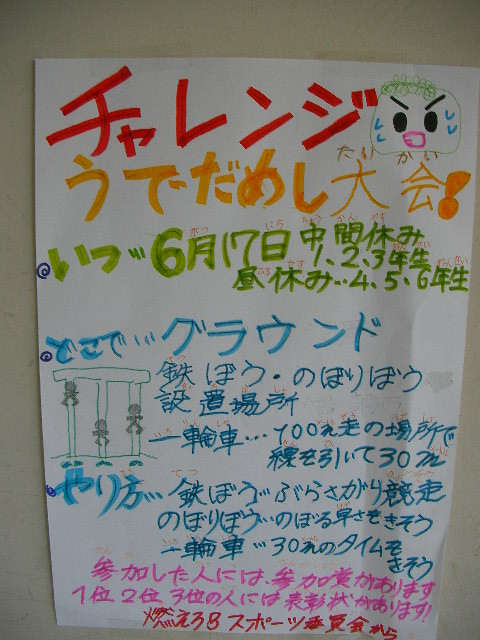 チャレンジ
うでだめし大会!
いつ…6月17日 中間休み
1、2、3年生
昼休み…4、5、6年生
どこで…グラウンド
鉄ぼう・のぼりぼう
設置場所
一輪車…100m走の場所で
線を引いて30m
やり方…鉄ぼう…ぶらさがり競走
のぼりぼう…のぼる早さをきそう
一輪車…30mのタイムを
きそう
参加した人には、参加賞があります
1位2位3位の人には表彰状があります!
燃えろBスポーツ委員会から